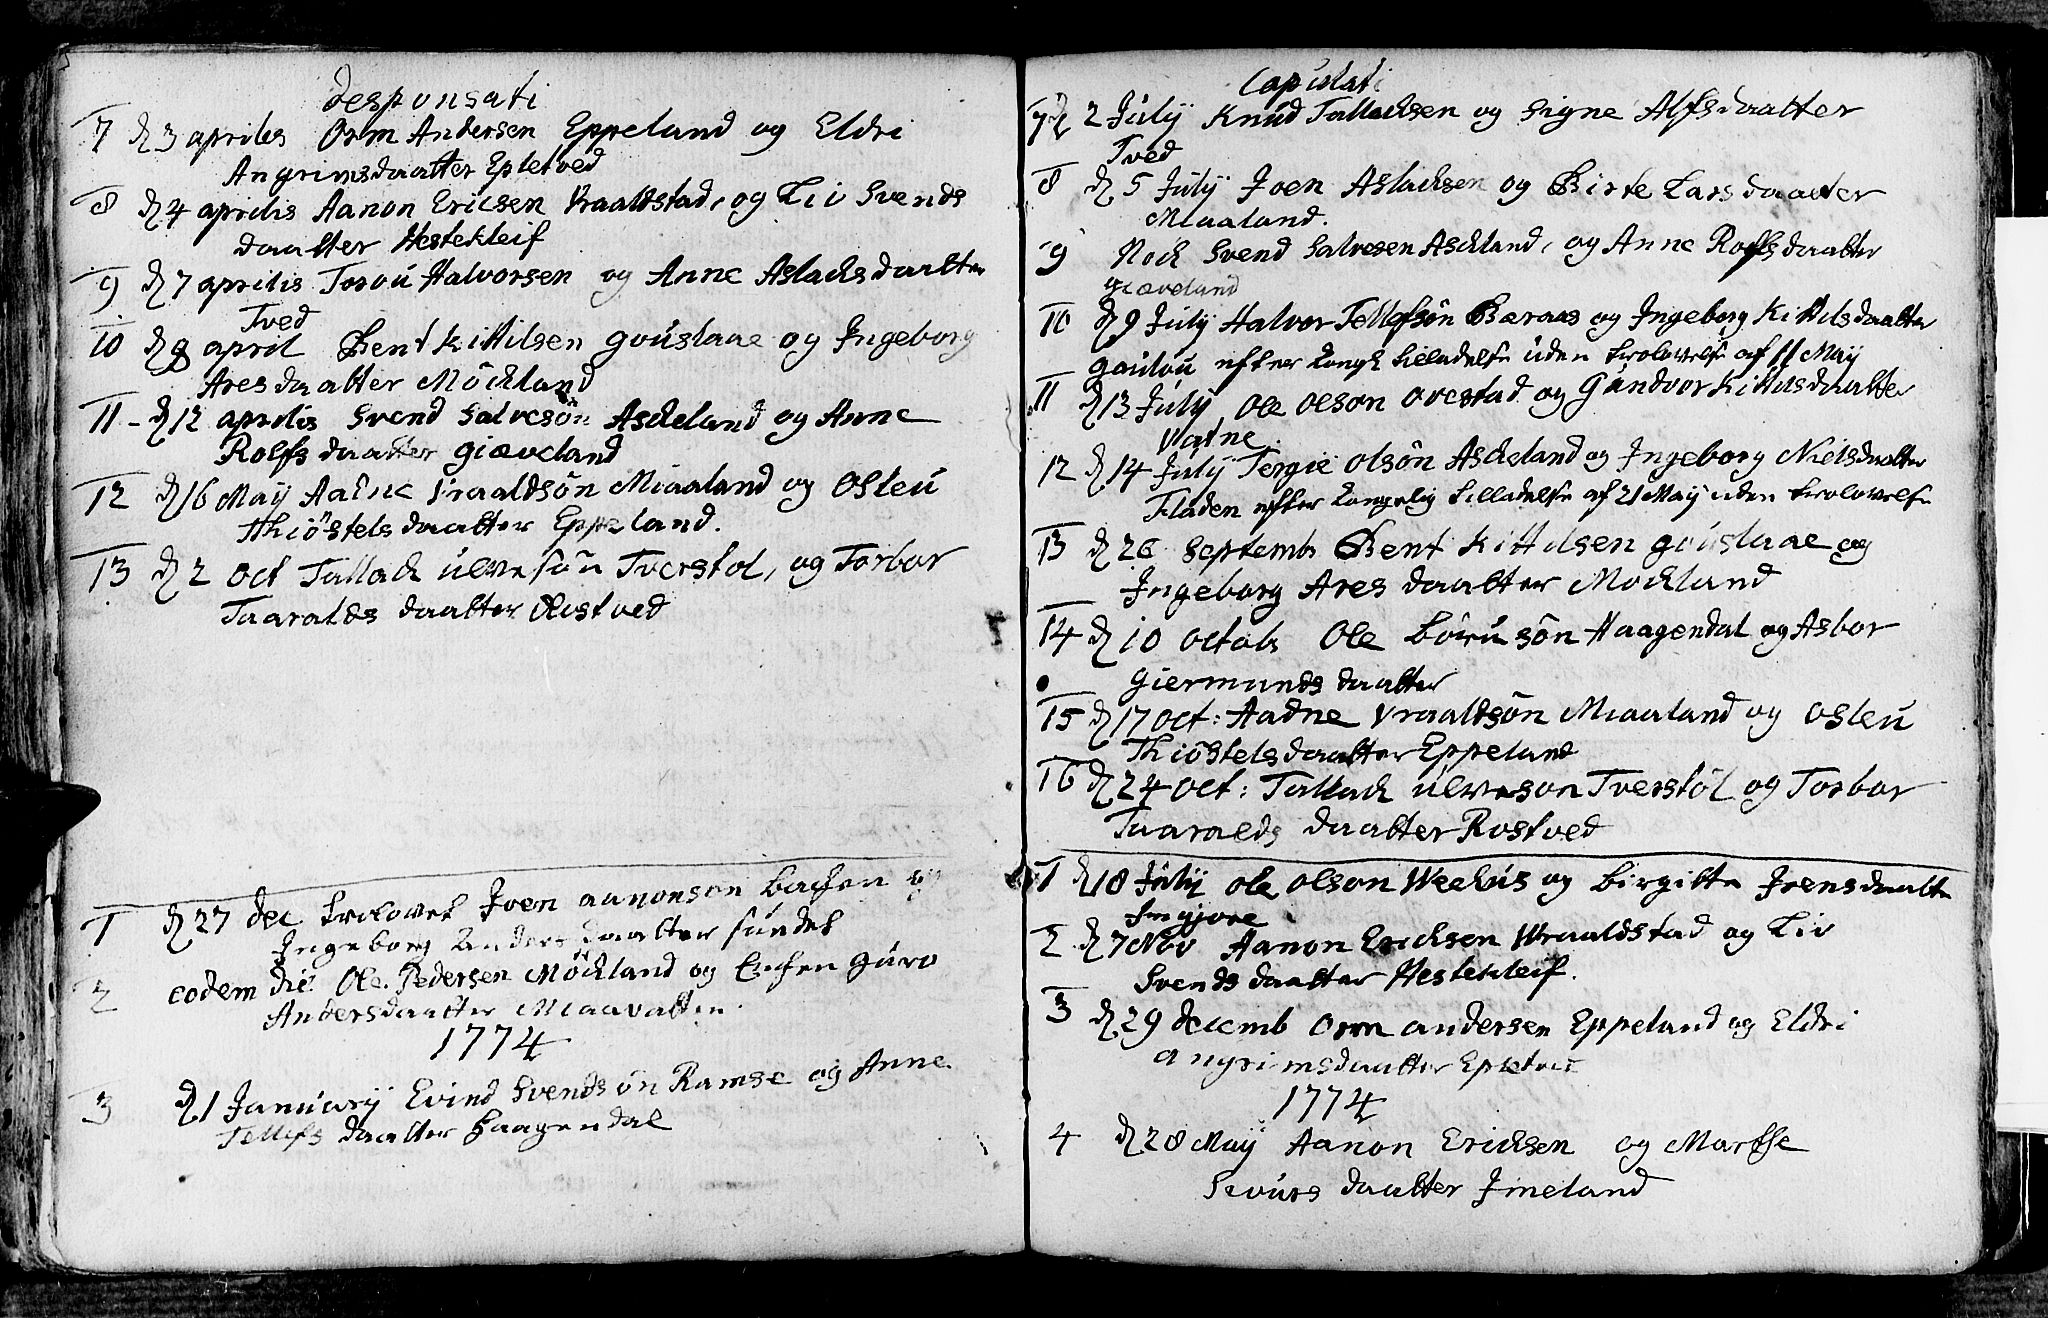 Desponsati
7 d 3 aprilis Orm Andersen Eppeland og Eldri
Angrimsdaatter Epletved
8 d 4 aprilis Aanon Ericsen Vraaldstad, og Liv Svends
daatter Hestekleif
9 d 7 aprilis Torou Halvorsen og Anne Aslachsdaatter
Tved
10 d 8 april Bent Kittilsen gouslaae og Ingeborg
Aresdaatter Möckland
11 - d 12 aprilis Svend Salvesøn Askeland og Anne
Rolfsdaatter giæveland
12 d 16 Maÿ Aadne Vraaldsøn Miaaland og Osleu
Thiöstelsdaatter Eppeland.
13 d 2 Oct Tallack ulvesøn Tverstøl, og Torbor
Taaralds daatter Rostved
1 d 27 dec trolovet Joen aanonsøn og
Ingeborg Anders daatter sundet
2 eodem die Ole Pedersen Möckland og Enchen guro
Andersdaatter Miaavatten.
1774
3 d 1 Januarÿ Evind Svendsøn Ramse og Anne
Tellefs daatter Haagendal
Copulati
7 d 2 Julÿ Knud Tallachsen og Signe Alfsdaatter
Tved
8 d 5 Julÿ Joen Aslachsen og Birte Larsdaatter
Miaaland.
9 Noch Svend Salvesen Askland, og Anne Rolfsdaatter
giæveland
10 d 9 Julÿ Halvor Tellefsøn Beraas og Ingeborg Kittilsdaatter
efter Kongl tilladelse uden trolovelse af 11 Maÿ
11 d 13 Julÿ Ole Olsøn Ovestad og Gundvor Kittilsdaatter
Vatne.
12 d 14 Julÿ Tergie Olsøn Askeland og Ingeborg Nielsdaatter
Fladen efter Kongelig tilladelse af 21 Maÿ uden trolovelse
13 d 26 Septemb Bent Kittilsen gouslaae og
Ingeborg Ares daatter Mockland
14 d 10 octob Ole Börusøn Haagendal og Asbor
giermunds daatter
15 d 17 Oct: Aadne Vraaldsøn Miaaland og Osleu
Thiöstelsdaatter Eppeland
16 d 24 Oct: Tallack ulvesøn Tverstøl og Torbor
Taaralds daatter Rostved
1 d 18 Julÿ Ole Olsøn og Birgitte Jensdaatter
2 d 7 Nov Aanon Ericksen Wraaldstad og Liv
Svends daatter Hestekleif.
3 d 29 decemb Orm andersen Eppeland og Eldri
angrimsdaatter Epletved
1774
4 d 28 Maÿ Aanon Ericksen og Marthe
Sevurs daatter Jmeland